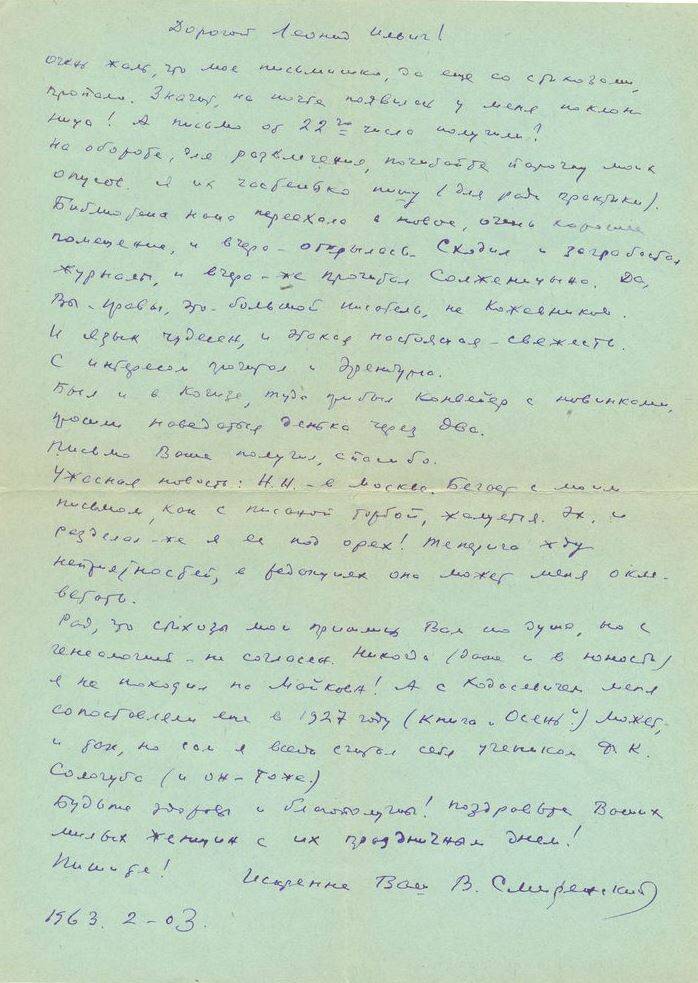 Дорогой Леонид Ильич!
Очень жаль, что мое письмишко, да еще со стихозами,
пропало. Значит, на почте появился у меня поклон-
ница! А письмо от 22го числа получили?
На обороте, для развлечения, почитайте парочку моих
опусов. Я их частенько пишу (для ради практики).
Библиотека наша переехала в новое, очень хорошее
помещение, и вчера – открылась. Сходил и заграбастал
журналы, и вчера-же прочитал Солженицына. Да,
Вы – правы, это – большой писатель, не Кожевников.
И язык чудесен, и этакая настоящая – свежесть.
С интересом прочитал и Эренбурга.
Был и в Когизе, туда прибыл конвейер с новинками,
просили наведаться денька через два.
Письмо Ваше получил, спасибо.
Ужасная новость: Н.Н. – в Москве. Бегает с моим
письмом, как с писаной торбой, жалуется. Эх, и
разделал-же я ее под орех! Теперича жду
неприятностей, в редакциях она может меня окле-
ветать.
Рад, что стихозы мои пришлись Вам по душе, но с
генеологией – не согласен. Никогда (даже и в юности)
я не походил на Майкова! А с Ходасевичем меня
сопоставляли еще в 1927 году (книга „Осень“.) Может,
и так, но сам я всегда считал себя учеником Ф. К.
Сологуба (и он – тоже.)
Будьте здоровы и благополучны! Поздравьте Ваших
милых женщин с их праздничным днем!
Пишите! Искренне Ваш В. Смиренский
1963. 2-03.